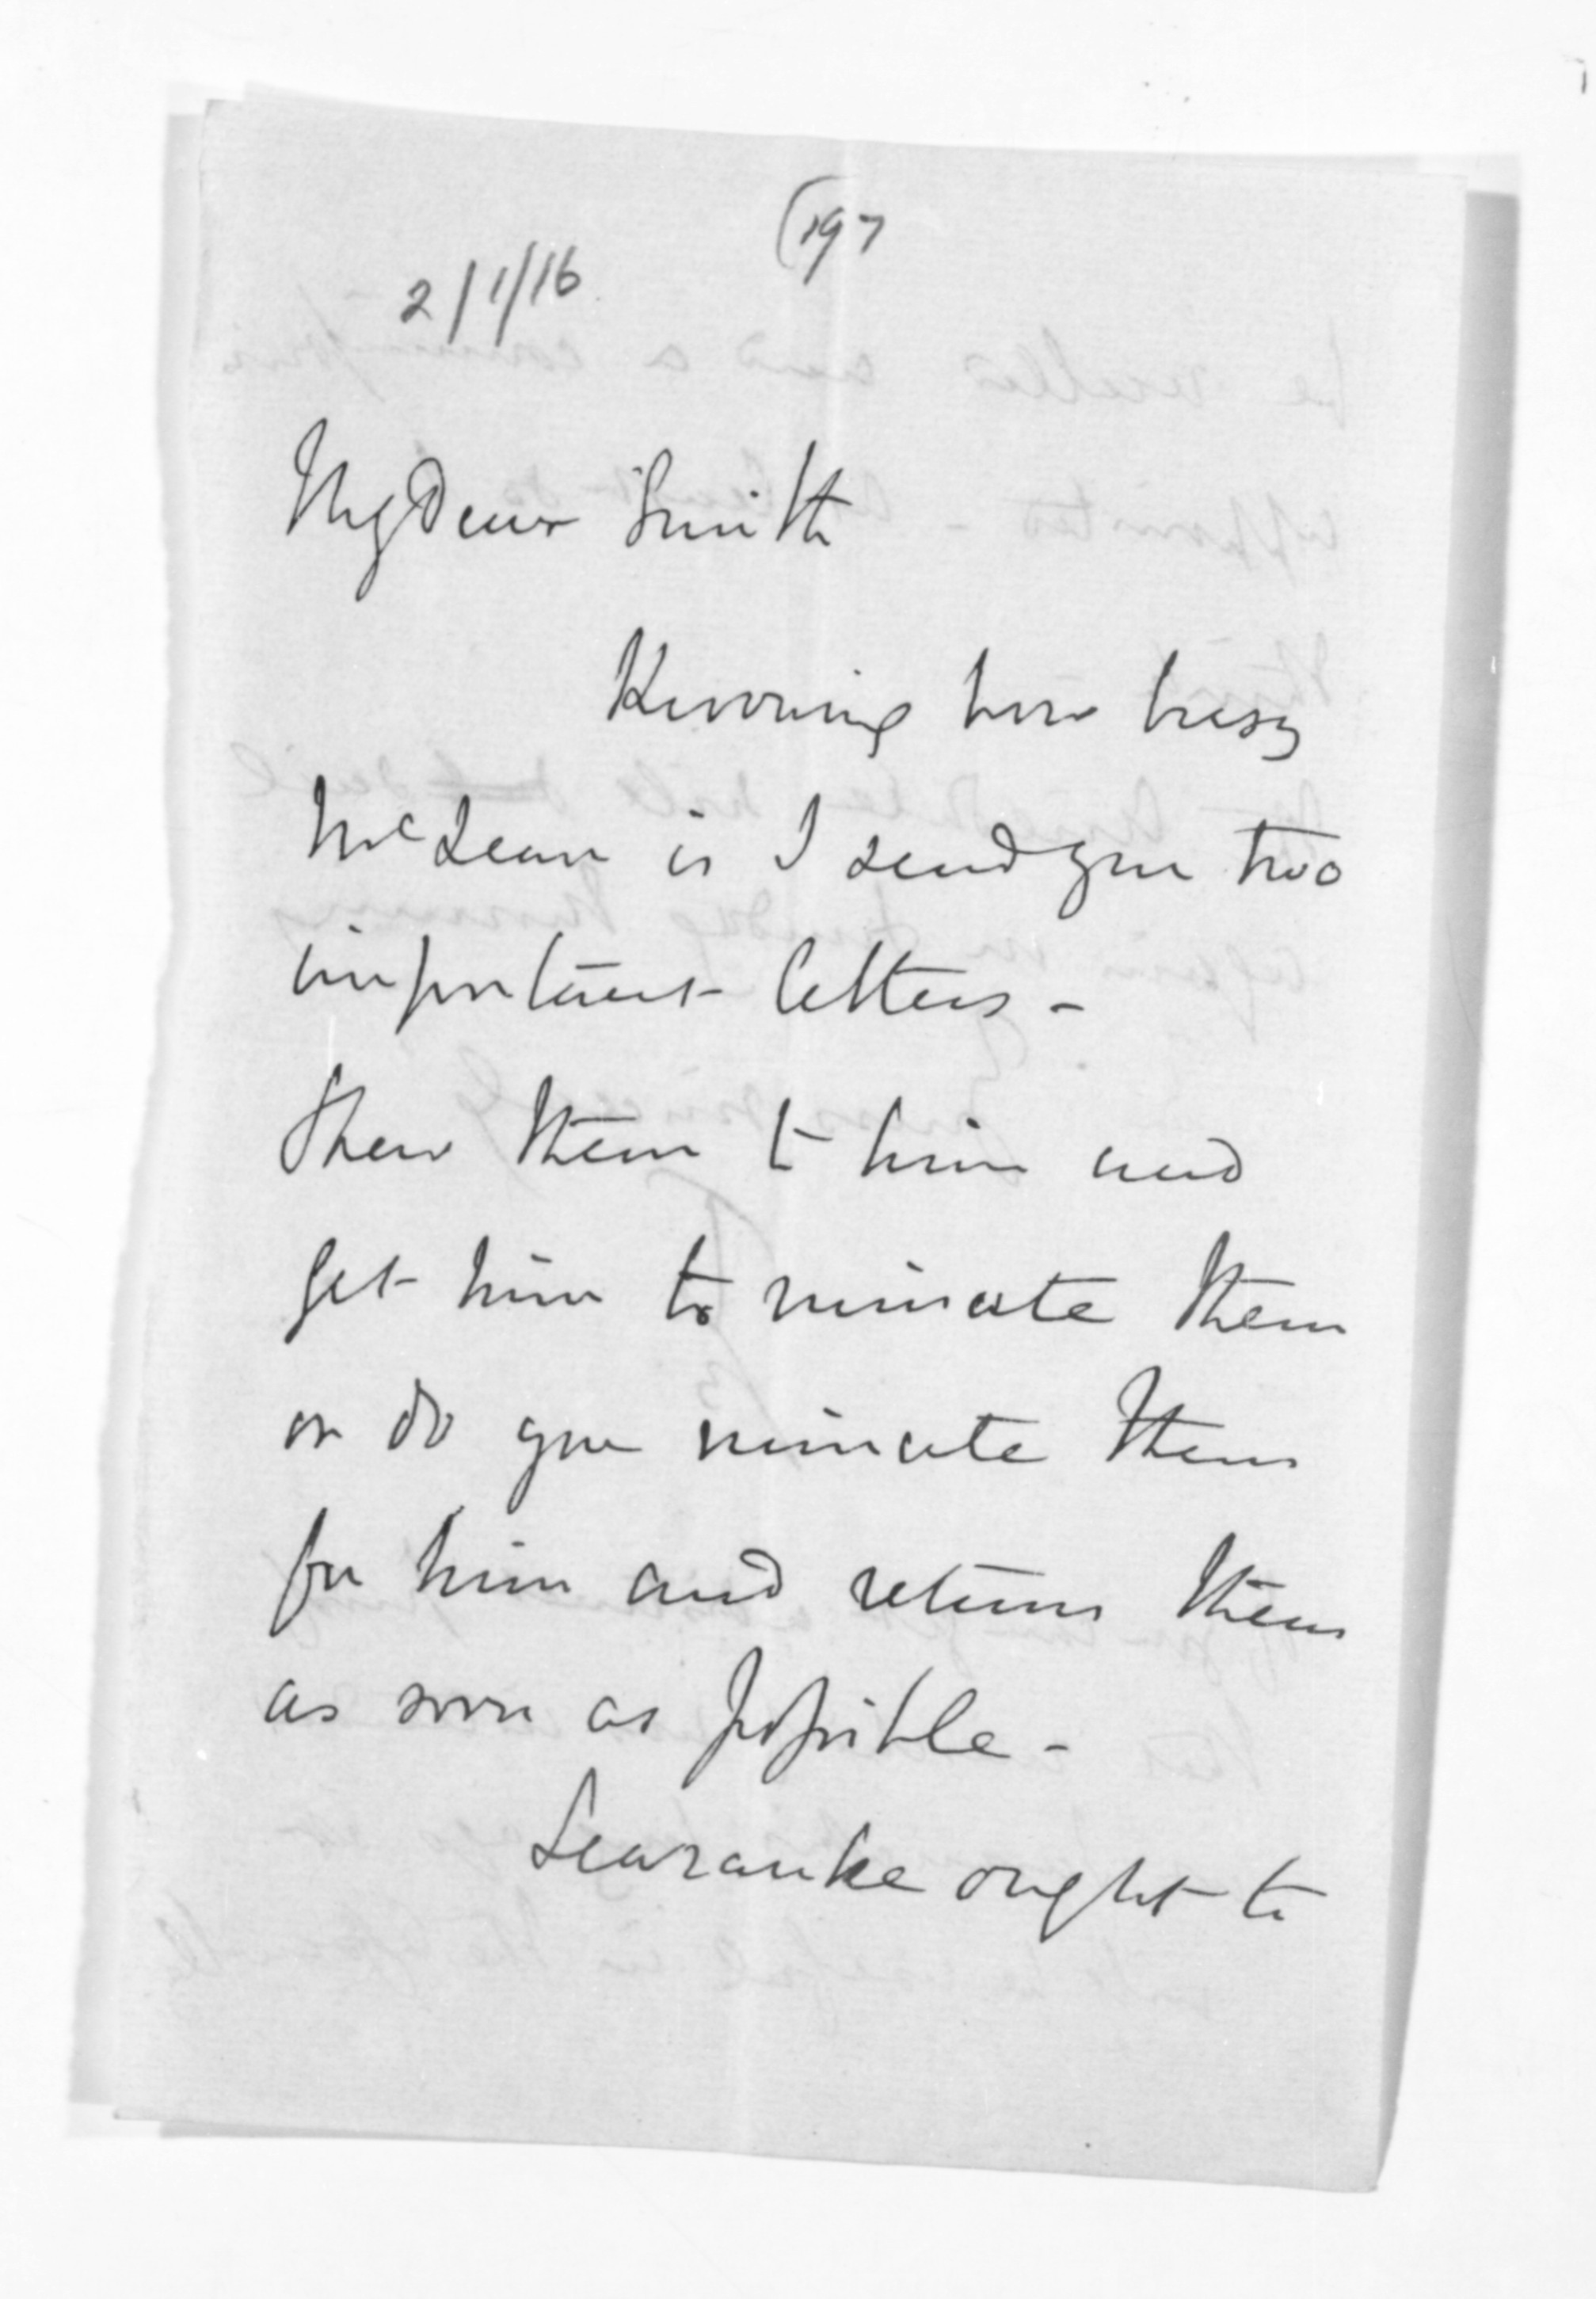 (197
2/1/16
My Dear Smith
Knowing how busy
McLean is I send you two
important letters -
Shew them to him and
get him to minute them
or do you minute them
for him and return them
as soon as possible -
Searanke ought to